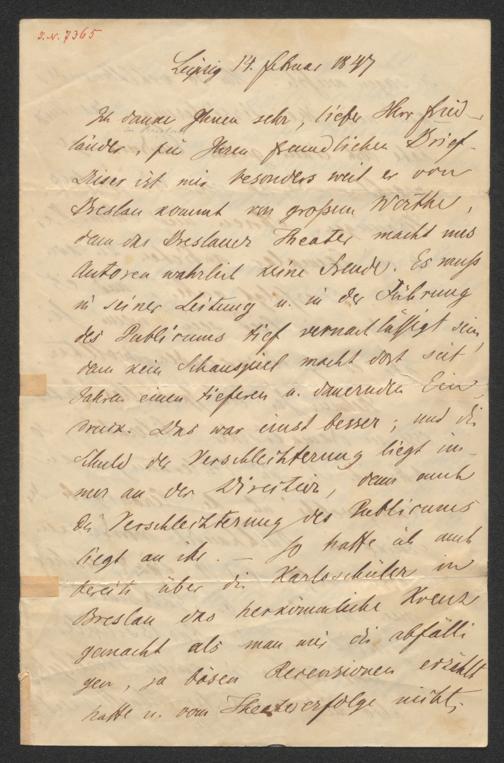 I.N. 7365
Leipzig 14. Februar 1847
Ich danke Ihnen sehr, lieber Herr Fried-
länder, für Ihren freundlichen Brief.
Dieser ist mir besonders weil er von
Breslau kommt von großem Werthe,
denn das Breslauer Theater macht uns
Autoren wahrlich keine Freude. Es muß
in seiner Leitung u. in der Führung
des Publicums tief vernachlässigt sein,
denn kein Schauspiel macht dort seit
Jahren einen tieferen u. dauernden Ein-
druck. Das war einst besser; und die
Schuld der Verschlechterung liegt im-
mer an der Direction, denn auch
die Verschlechterung des Publicums
liegt an ihr. — So hatte ich auch
bereits über die Karlsschüler in
Breslau das herkömmliche Kreuz
gemacht als man mir die abfälli-
gen, ja bösen Recensionen erzählt
hatte u. vom Theatererfolge nichts,